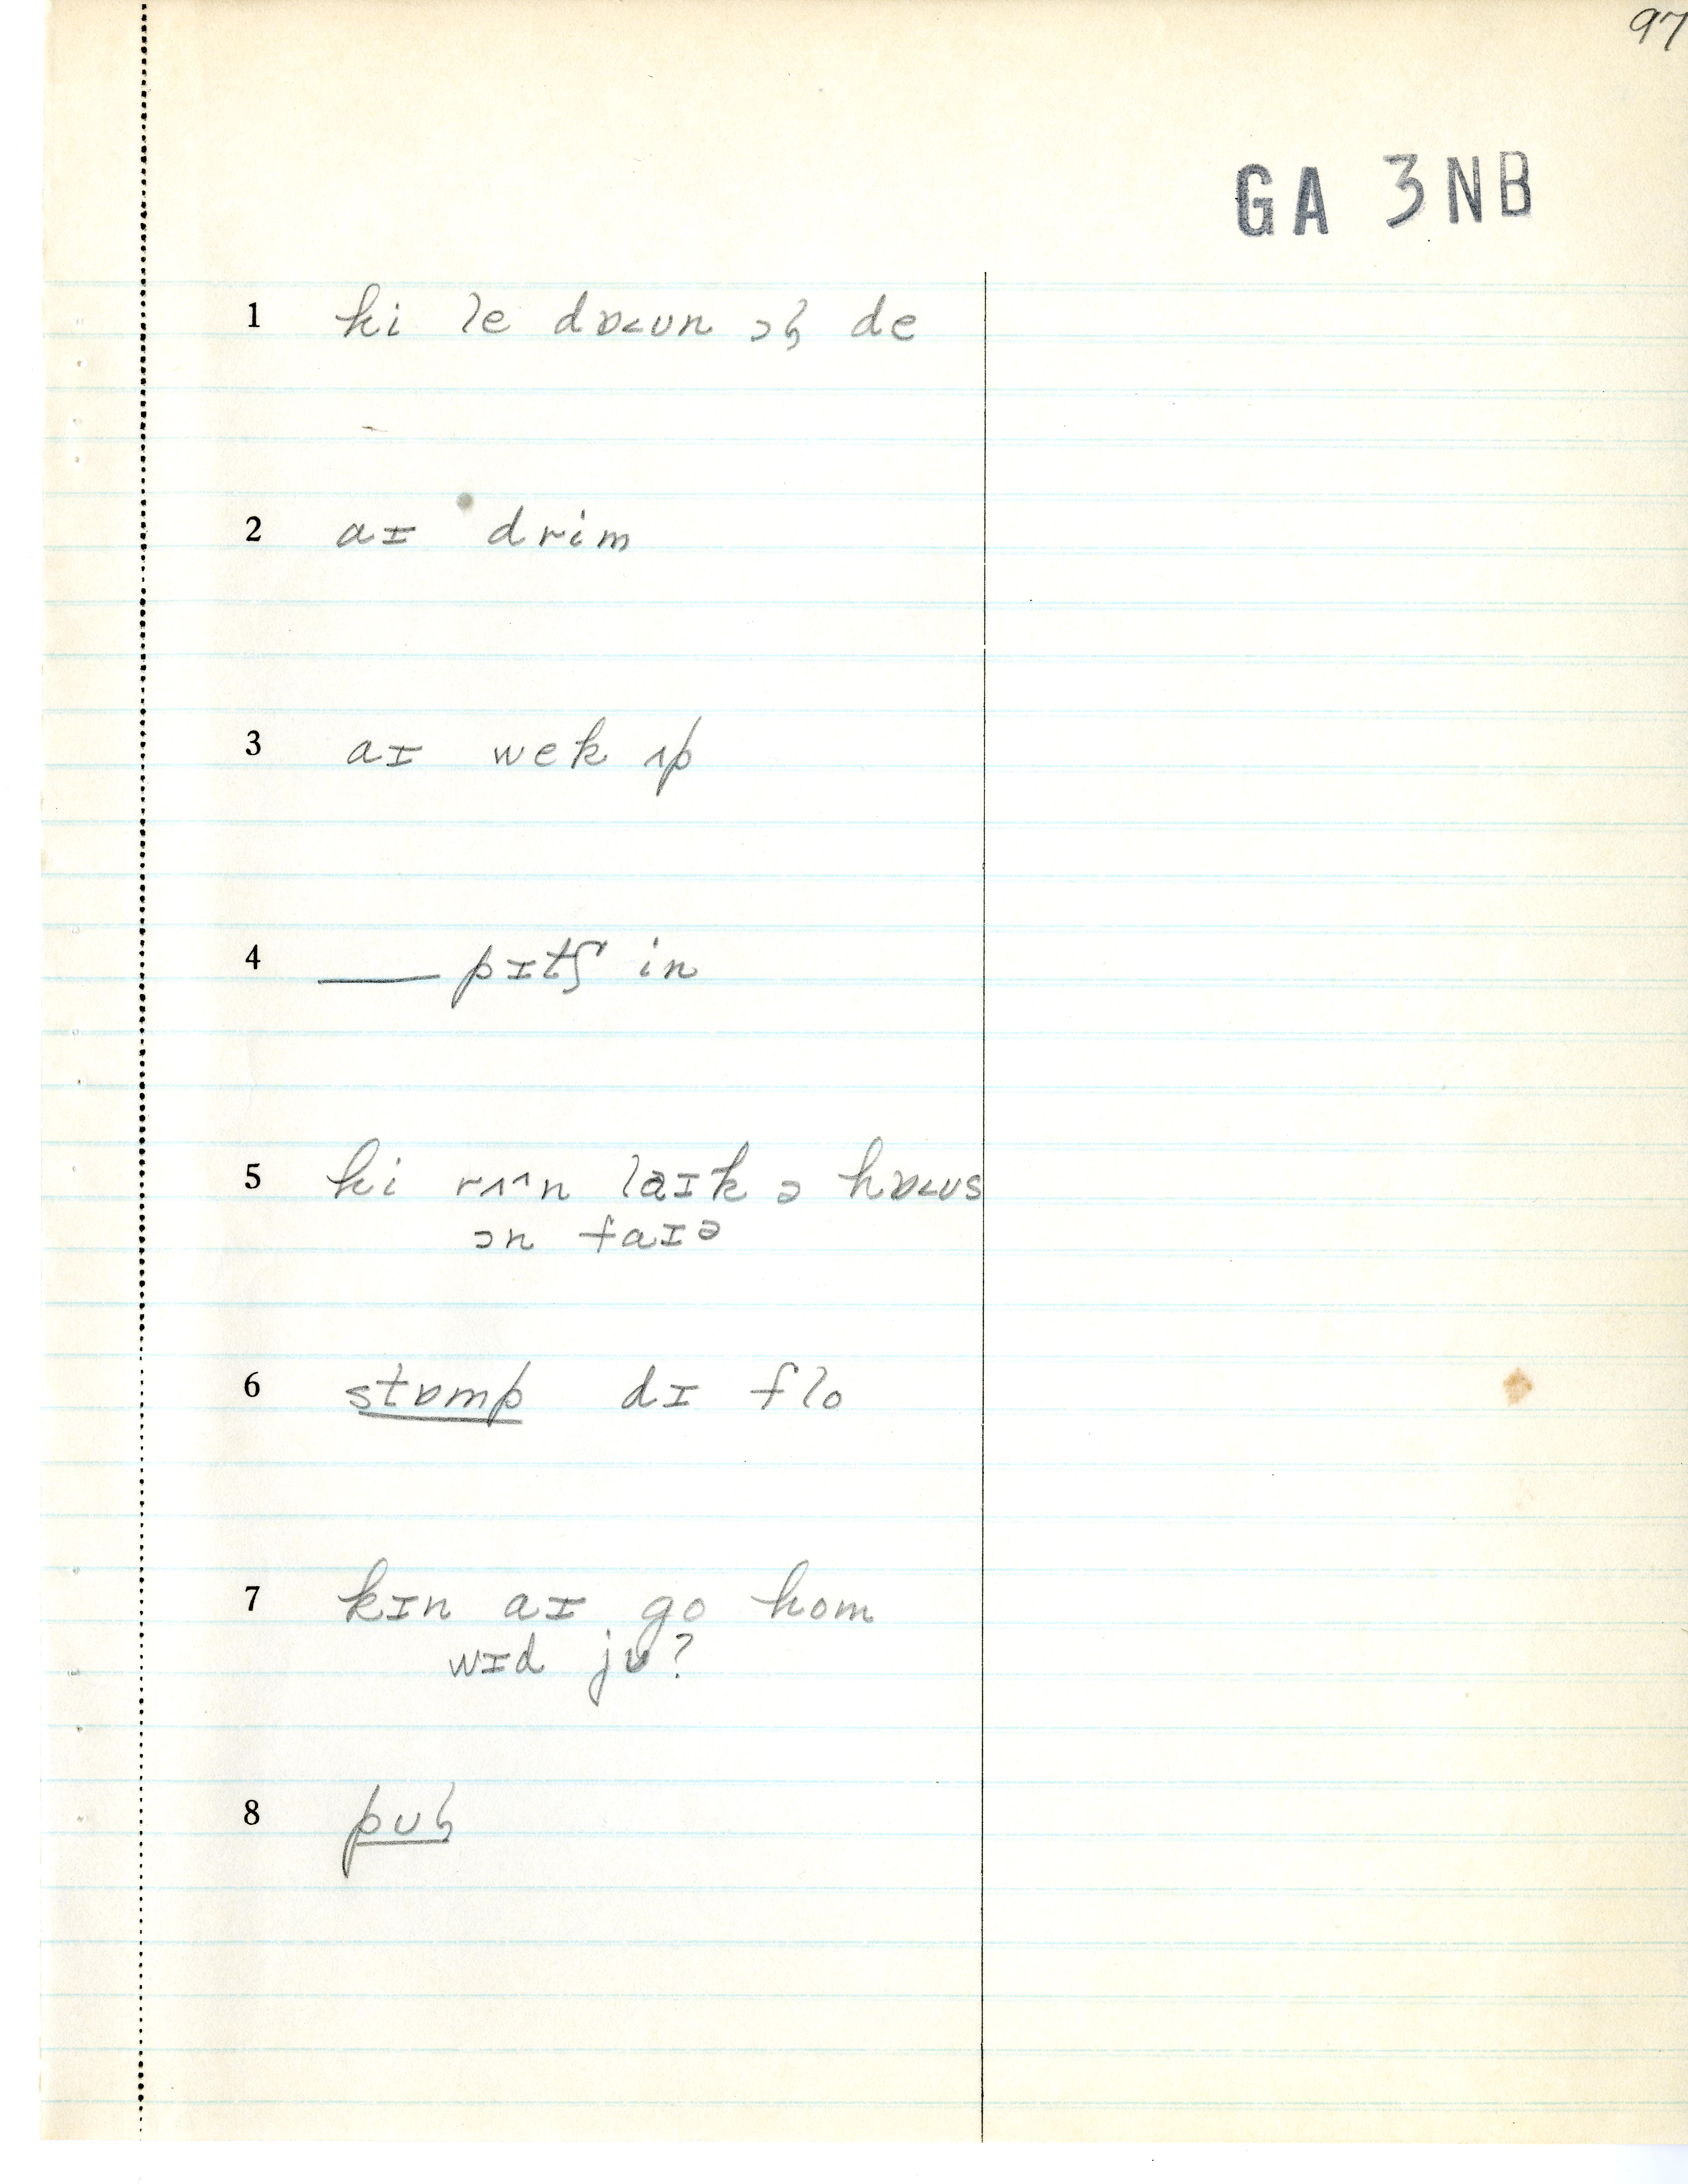 97
GA 3NB
1 hi le dɒ<ʊn ɔɫ de
2 aɪ drim
3 aɪ wek ʌp
4 ___ pɪtʃ in
5 hi rʌ^n laɪk ə hɒ<ʊs
ɔn faɪə
6 stɒmp dɪ flo
7 kɪn aɪ go hom
wɪd jʊ?
8 pʊɫ